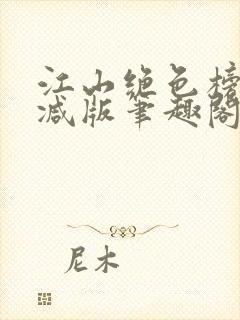 江山绝色榜
减版笔趣阁
尼木